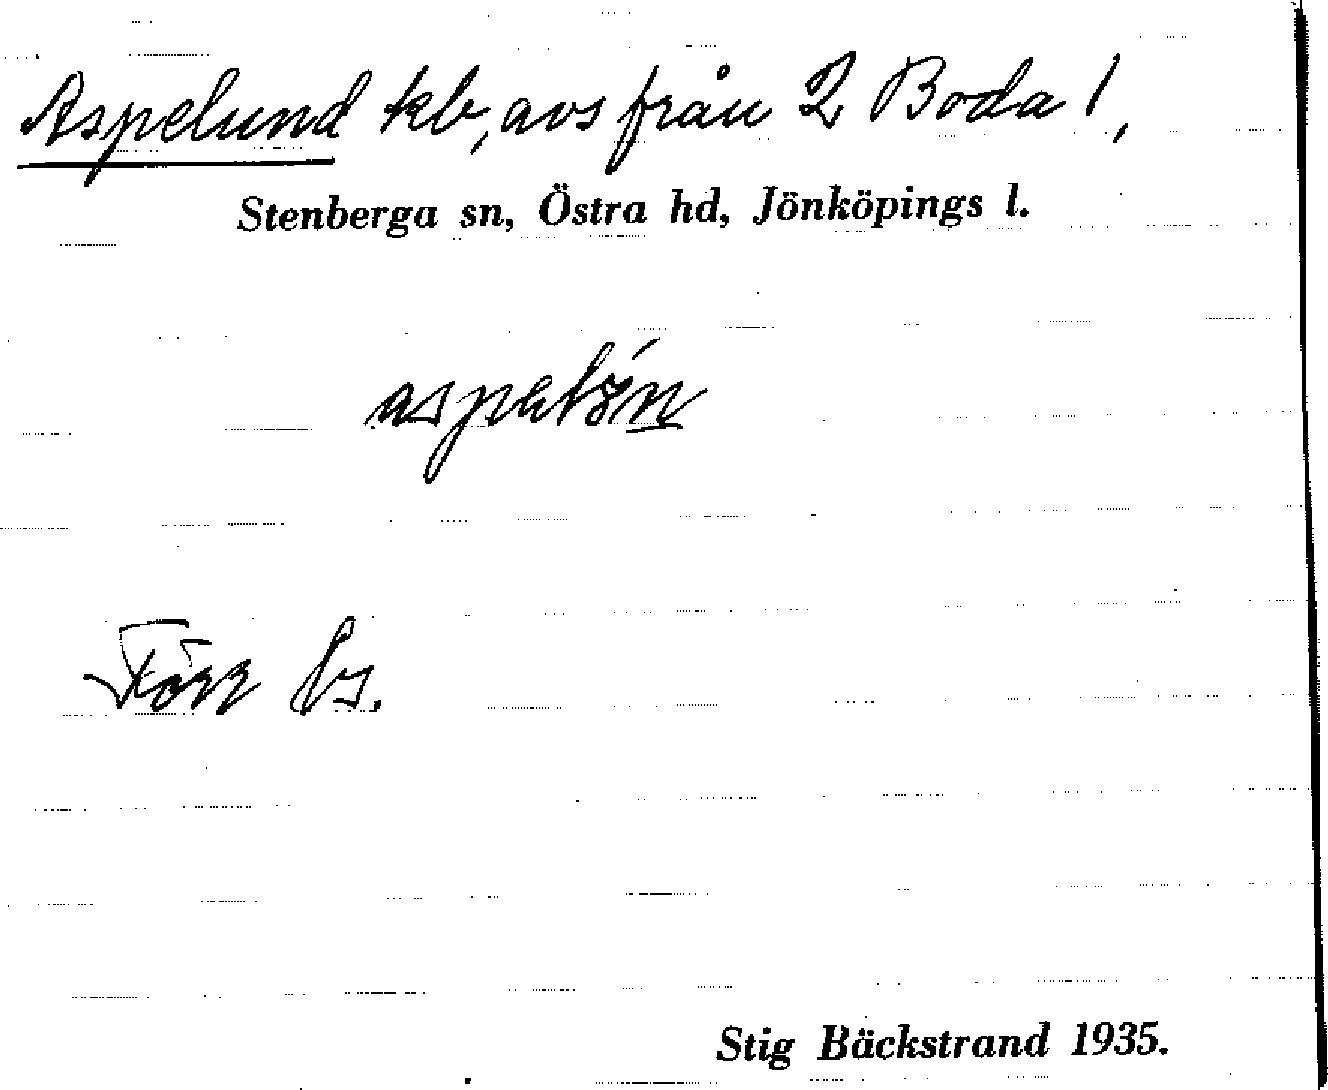 Aspelund kb, avs från 2 Boda 1,
Stenberga sn, Östra hd, Jönköpings l.
Stig Bäckstrand 1935.